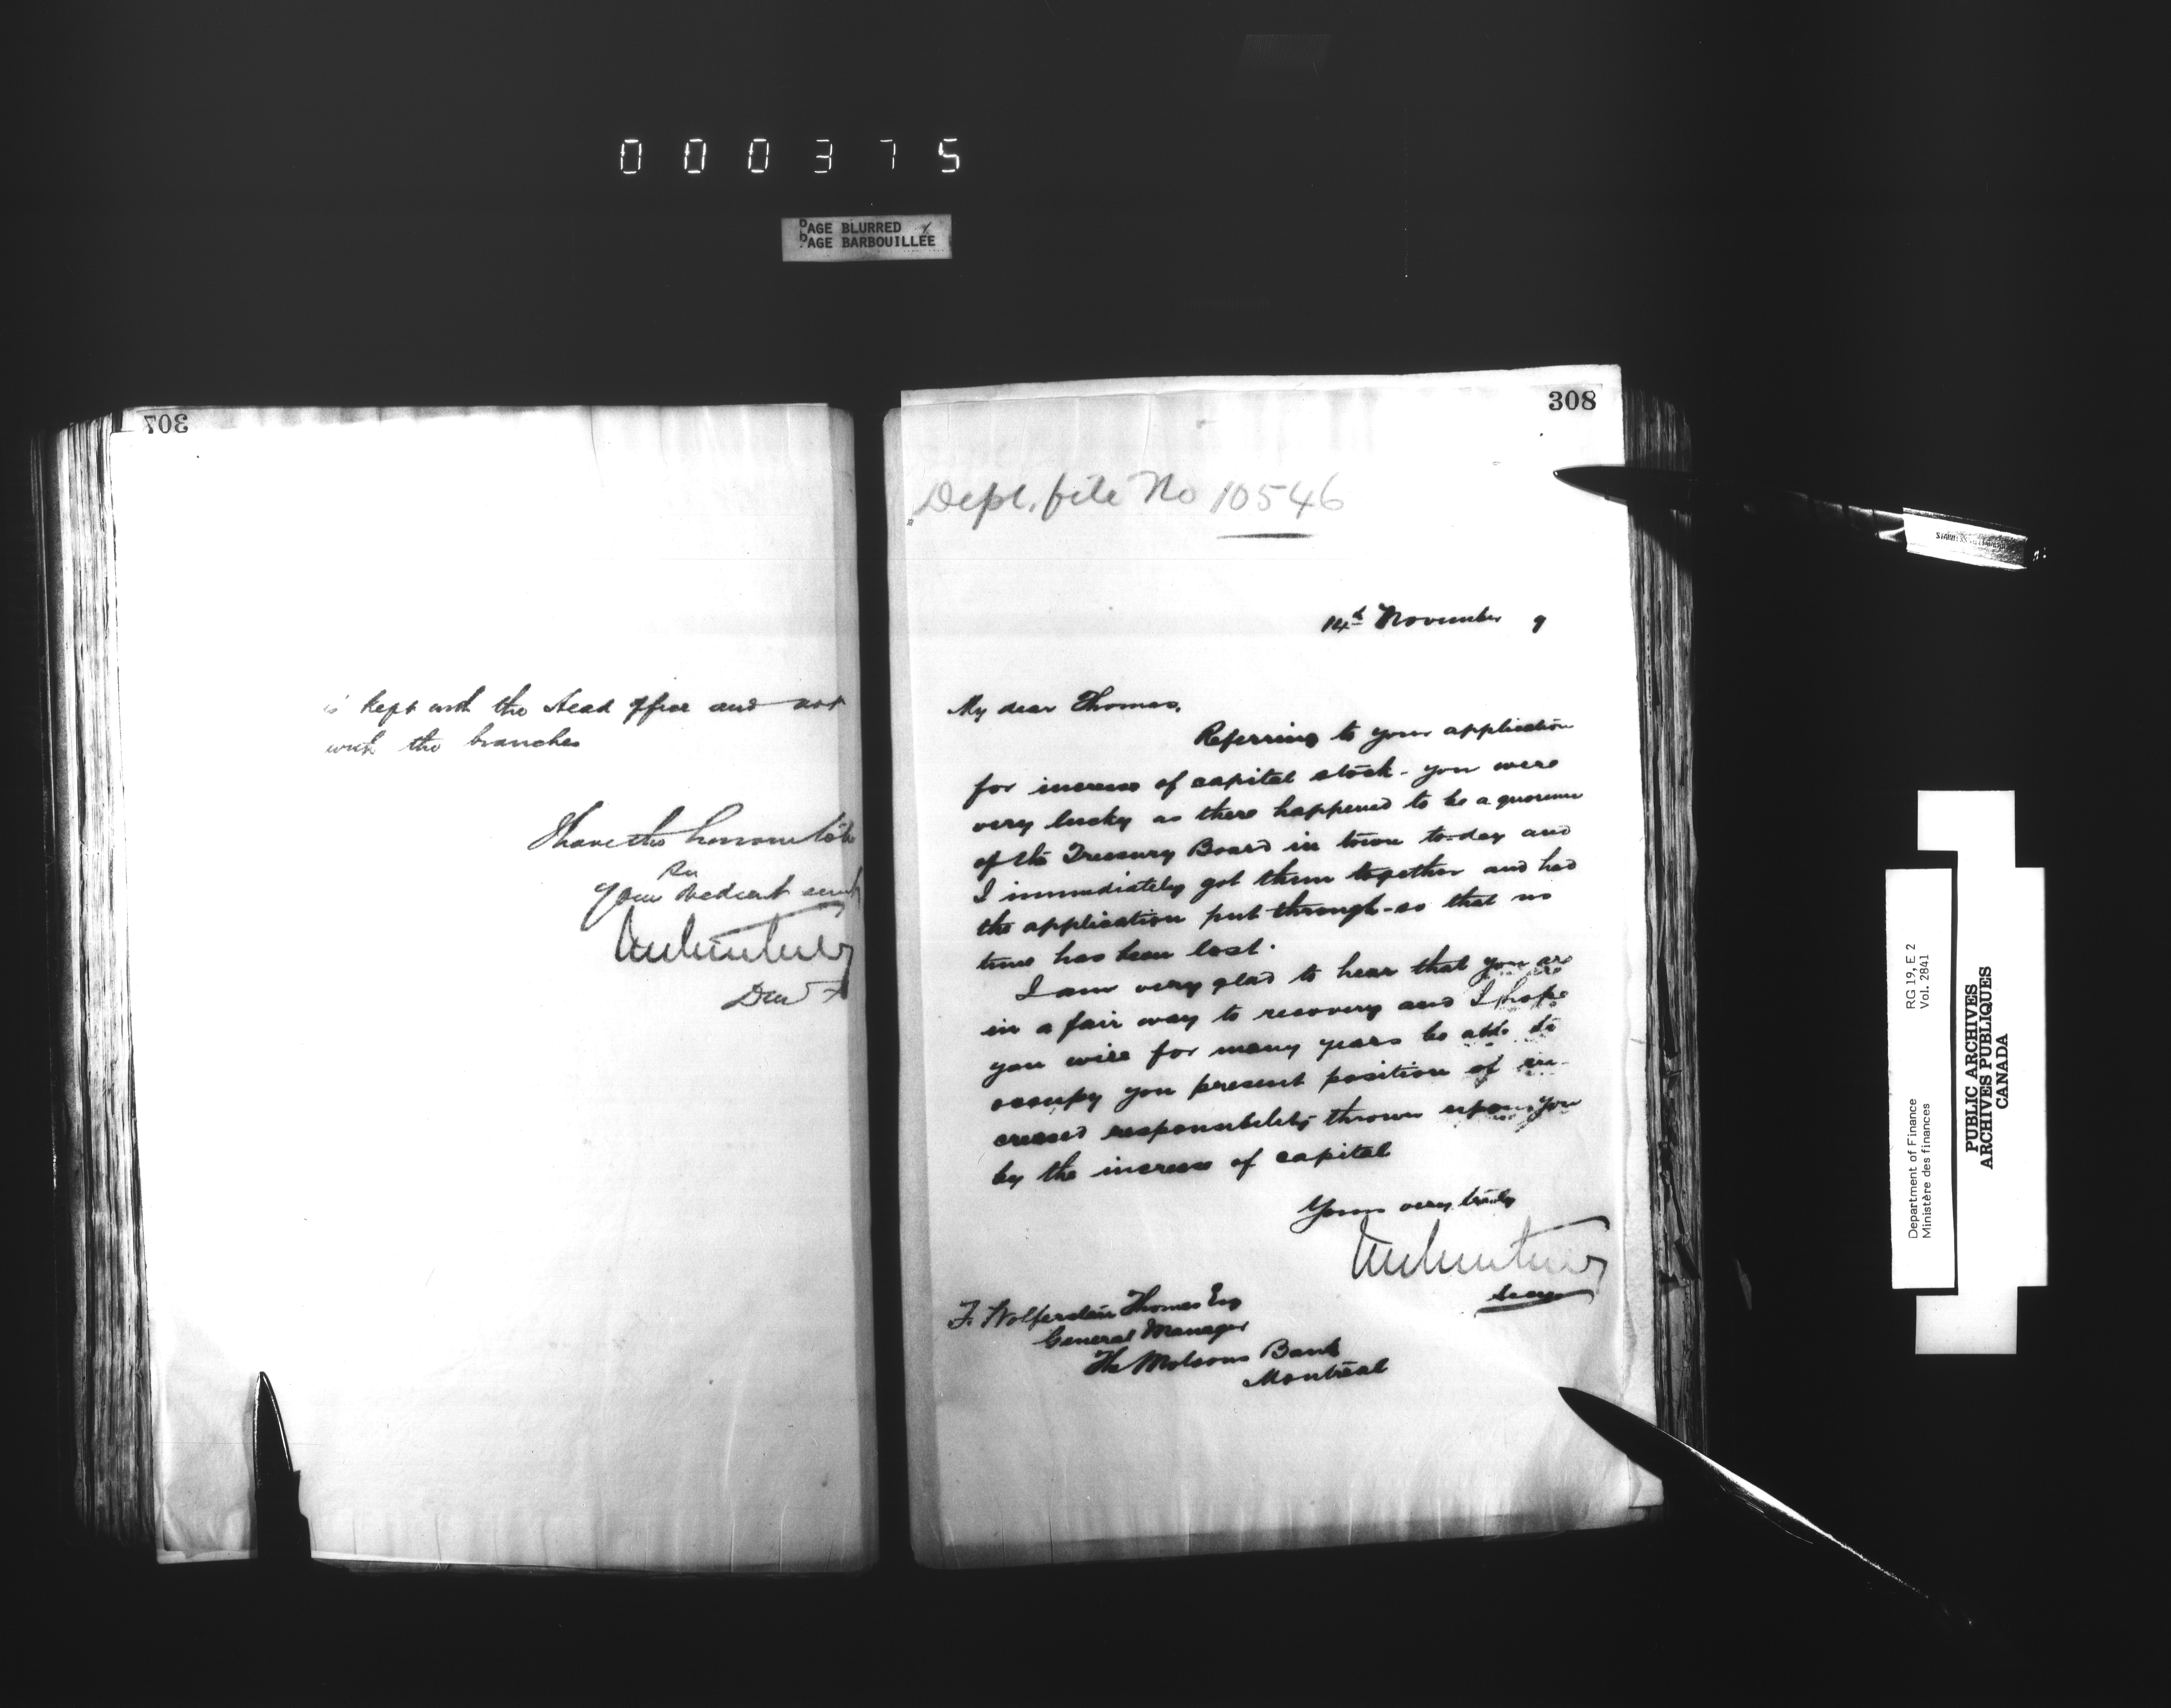 000375
PAGE BLURRED
PAGE BARBOUILLÉE
307
is kept with the Head Office and not
with the branches
I have the honour to be
Sir
Your obedient servt
308
Dept. file No 10546
14th November 9
My dear Thomas,
Referring to your application
for increase of capital stock - you were
very lucky as there happened to be a quorum
of the Treasury Board in town to-day and
I immediately got them together and had
the application put through - so that no
time has been lost.
I am very glad to hear that you are
in a fair way to recovery and I hope
you will for many years be able to
occupy you present position of in-
creased responsibility thrown upon you
by the increase of capital
Yours very truly
F. Wolferstan Thomas Esq
General Manager
The Molsons Bank
Montreal
Department of Finance RG 19, E 2
Ministère des finances Vol. 2841
PUBLIC ARCHIVES
ARCHIVES PUBLIQUES
CANADA